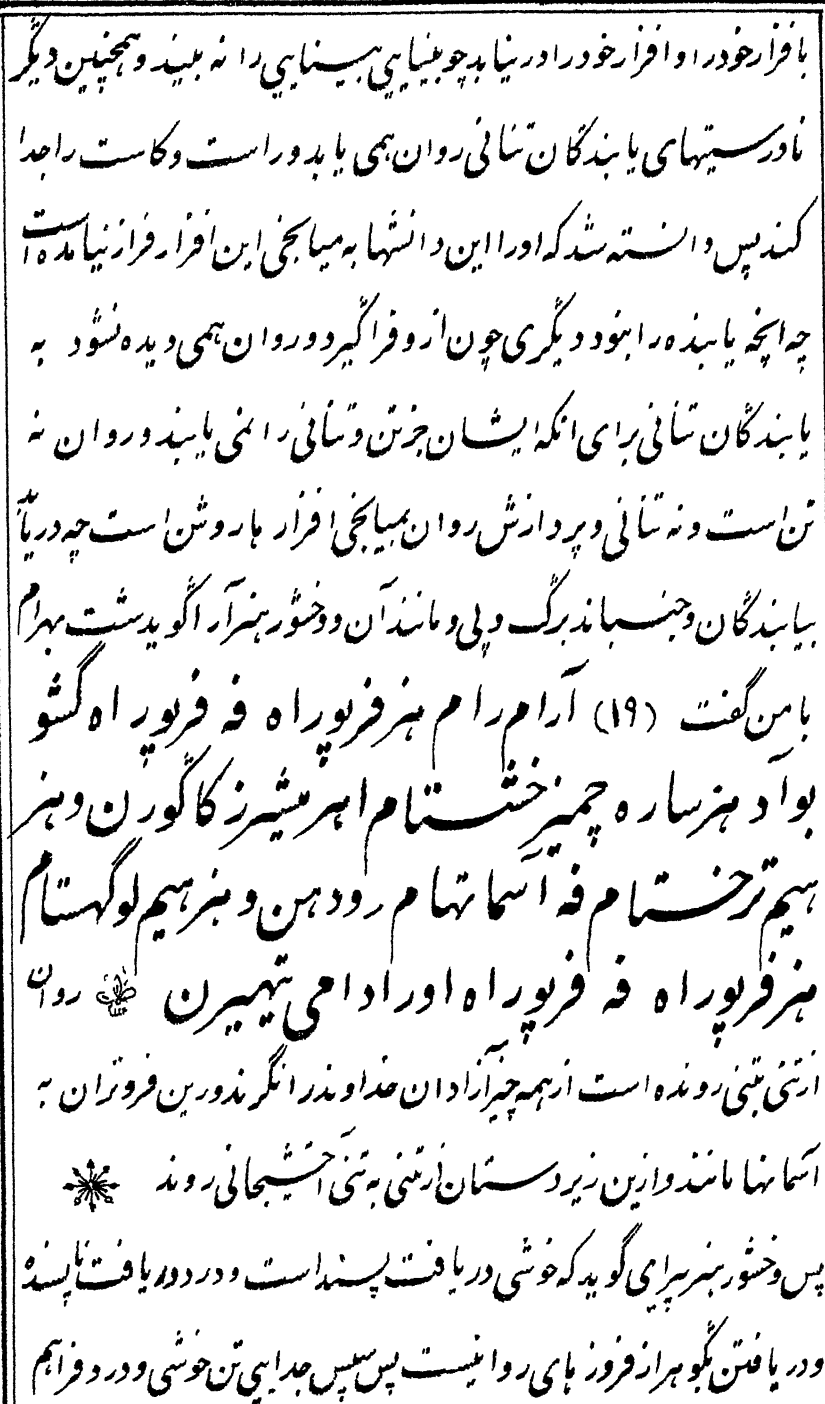 بافزار خود را و افزار خود را در نیابد چو بینایی بینایی را نه بیند و همچنین دیگر
نادرستیهای یابندگان تنانی روان همی یابد و راست و کاست را جدا
کند پس دانسته شد که او را این دانشها به میانجی این افزار فراز نیامده است
چه آنچه یابنده را بنود دیگری چون ازو فرا گیرد و روان همی دیده نشود به
یابندگان تنانی برای انکه ایشان جز تن و تنانی را نمی یابند و روان نه
تن است و نه تنانی و پردازش روان بمیانجی افزار ها روشن است چه دریابد
بیابندگان و جنباند برگ و پی و مانند آن و وخشور هنر آرا گوید دشت بهرام
بامن گفت (۱۹) آرام رام هز فرپوراه فه فرپور اه گشو
بواد هز ساره چمیز خشتام اهر میشرز کاگورن و هز
هیم ترخستام فه آسمانهام رودهن و هز هیم لوگهستام
هز فرپوراه فه فرپوراه اورادامی تیمیرن روان
از تنی بتنی رونده است از همه چیز آزادان خداوند را نگرند و رین فروتران به
آسمانها مانند و ازین زیردستان از تنی به تنی آخشیجانی روند
پس وخشور هنر پیرای گوید که خوشی دریافت پسند است و درد دریافت ناپسنده
و دریافتن بگوهر از فروزهای روانیست پس سپس جدایی تن خوشی و درد فراهم